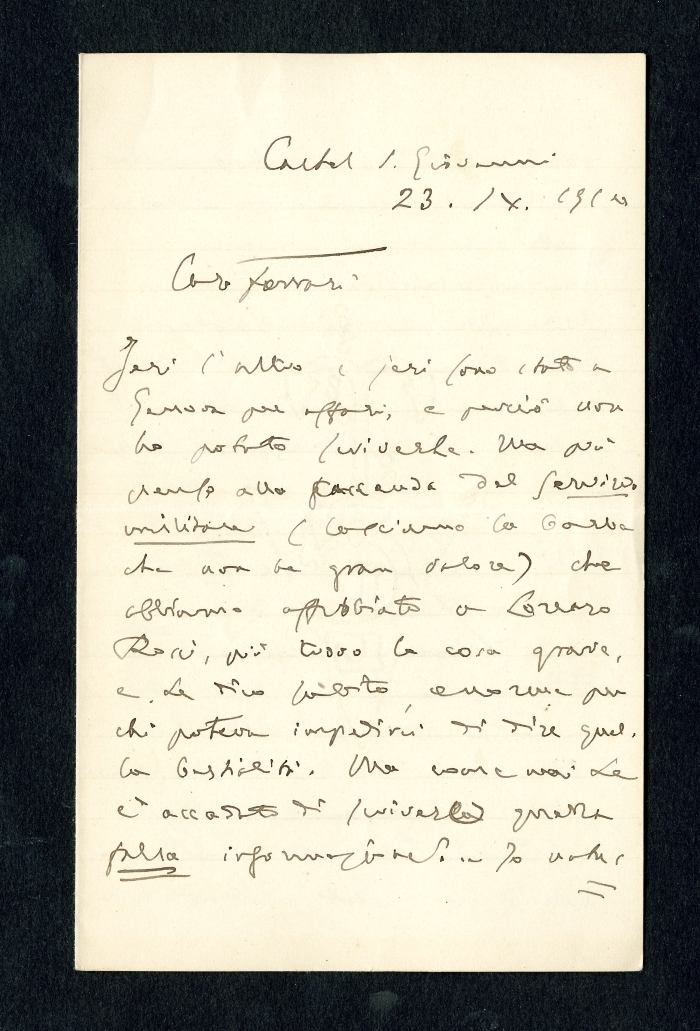 Castel S. Giovanni
23. IX. 1910
Caro Ferrari
Jeri l'altro e jeri sono stato a
Genova per affari, e perciò non
ho potuto scriverle. Ma più
penso alla faccenda del servizio
militare (lasciamo la
che non ha gran valore) che
abbiamo affibbiato a Lorenzo
più trovo la cosa grave,
e Le dico subito, enorme per
chi poteva impedirci di dire quel-
la bestialità. Ma come mai Le
è accaduto di scriverla questa
falsa informazione? .. Io